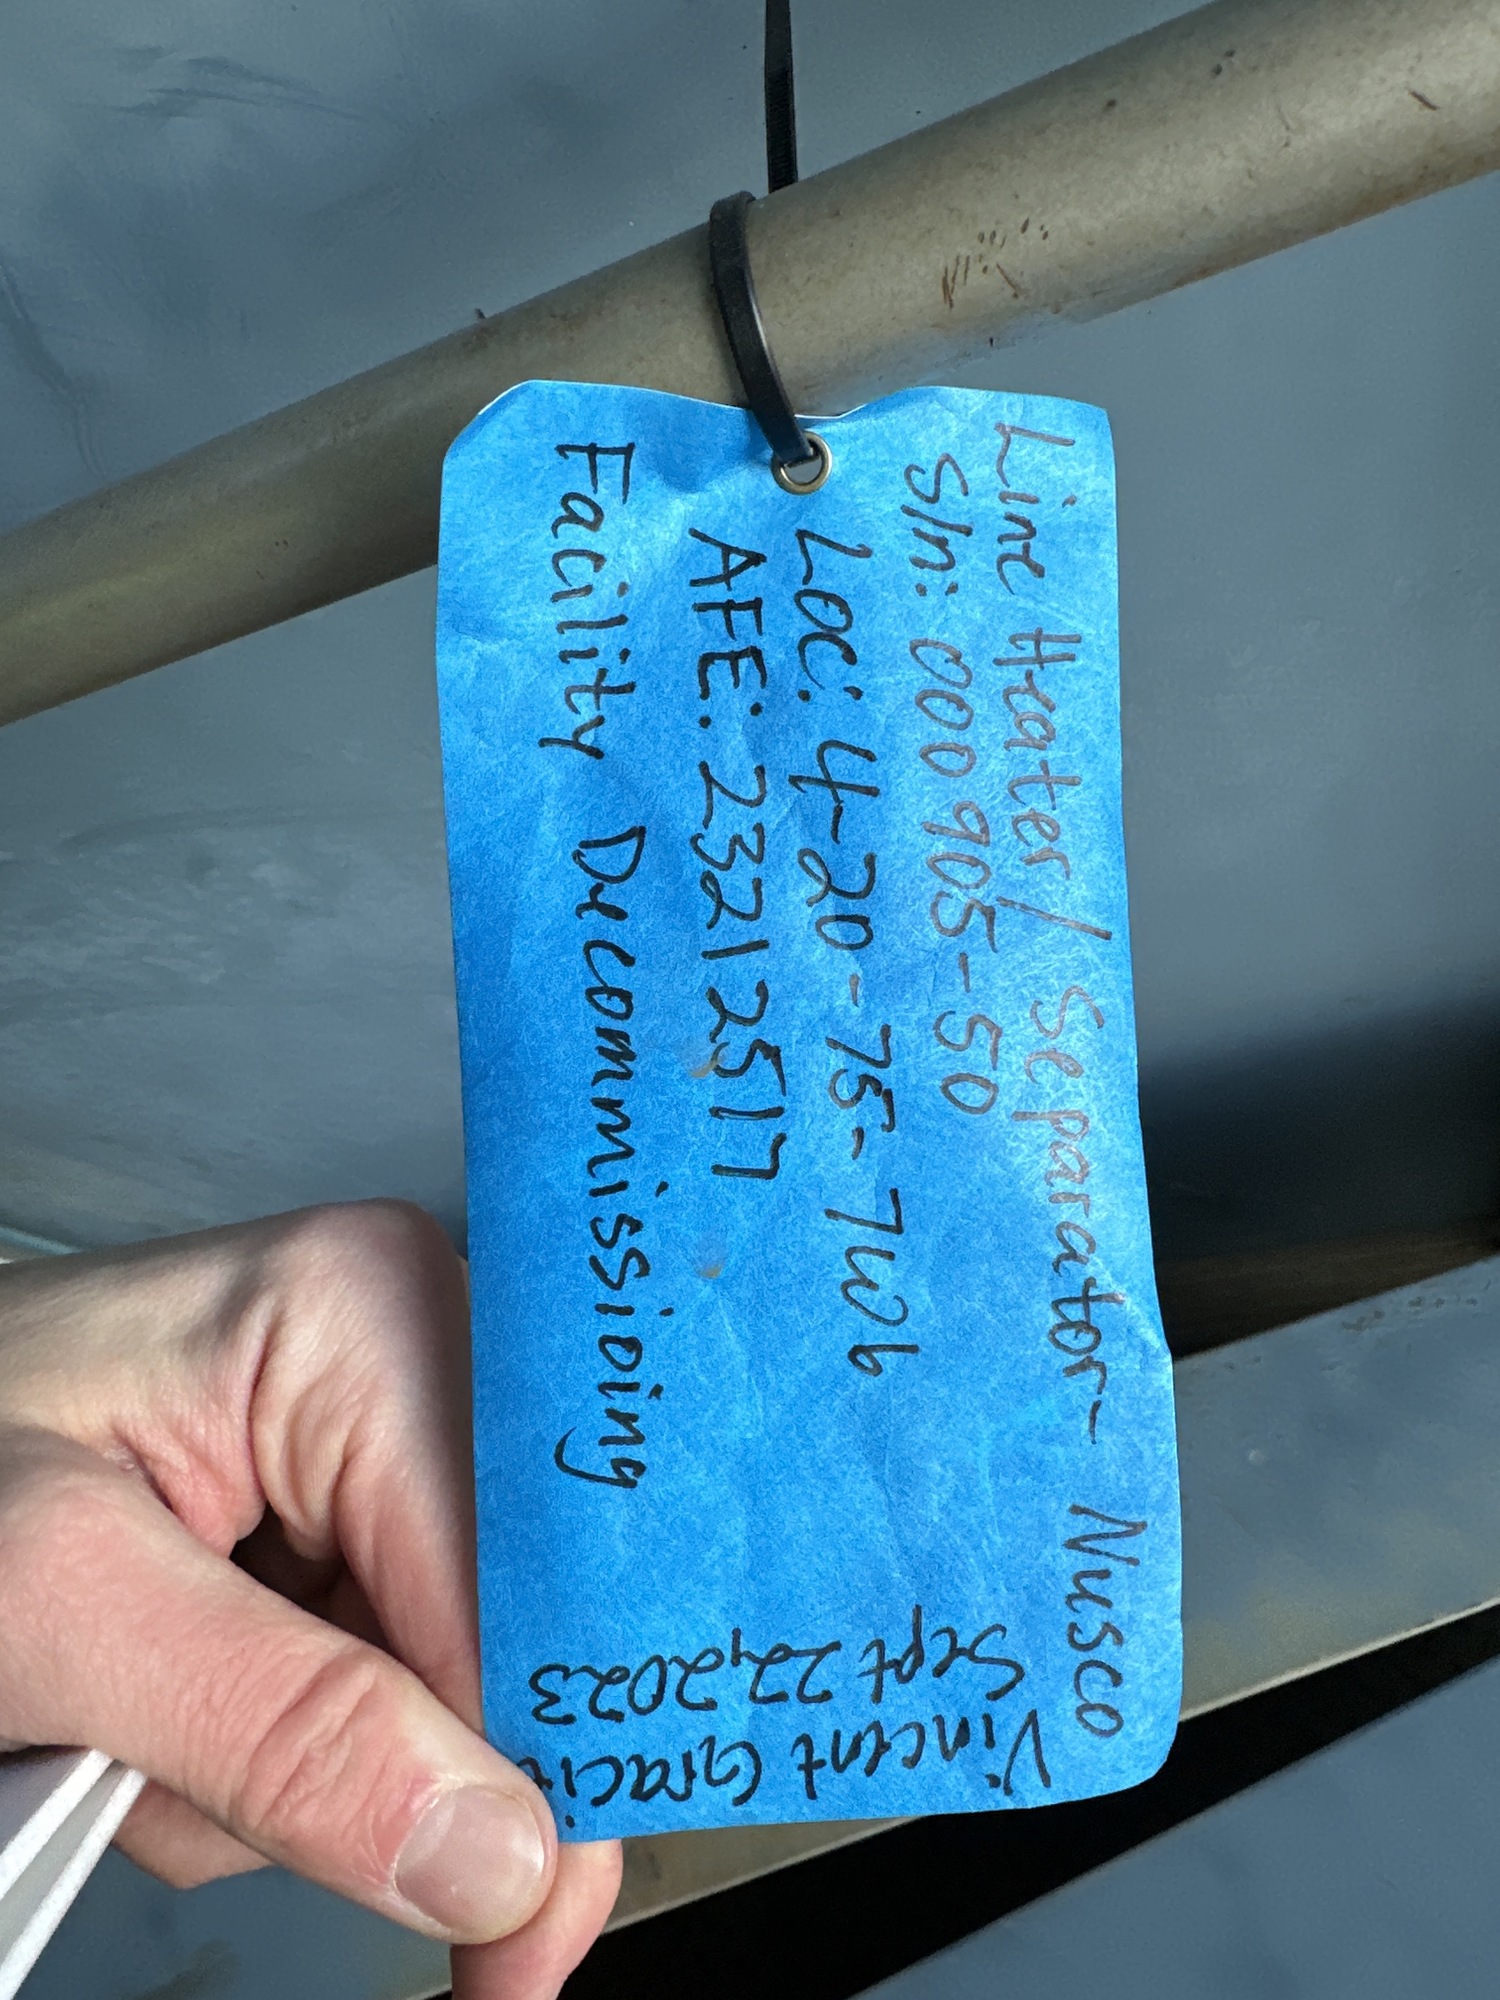 Line Heater / Separator - Nusco
S/n: 000905-50
Loc: 4-20-75-7W6
AFE: 23212517
Facility Decommissioing
Sept 22, 2023
Vincent